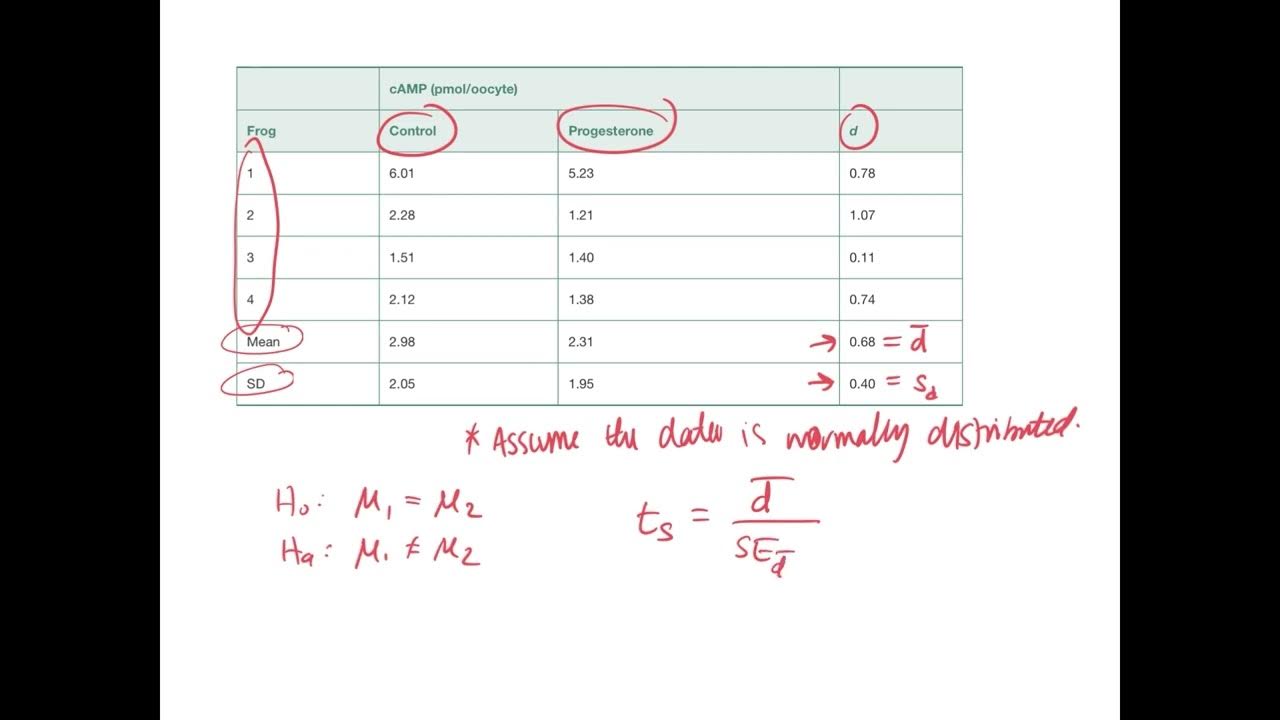 cAMP (pmol/oocyte)
Frog Control Progesterone d
1 6.01 5.23 0.78
2 2.28 1.21 1.07
3 1.51 1.40 0.11
4 2.12 1.38 0.74
Mean 2.98 2.31 → 0.68 = d̅
SD 2.05 1.95 → 0.40 = s_d
* Assume the data is normally distributed.
H₀: μ₁ = μ₂
Hₐ: μ₁ ≠ μ₂
t_s = d̅ / SE_d̅